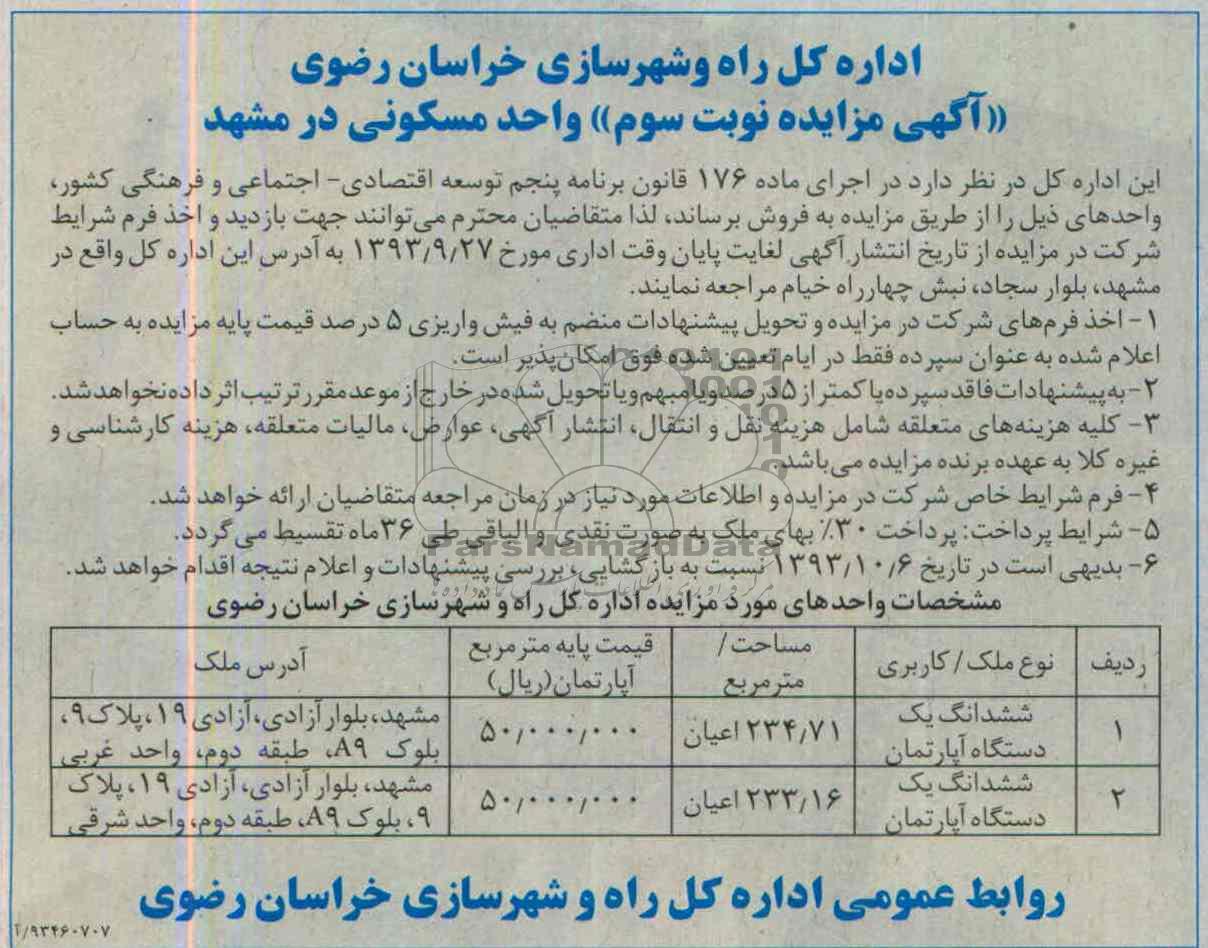 اداره کل راه وشهرسازی خراسان رضوی
«آگهی مزایده نوبت سوم» واحد مسکونی در مشهد
این اداره کل در نظر دارد در اجرای ماده ۱۷۶ قانون برنامه پنجم توسعه اقتصادی- اجتماعی و فرهنگی کشور،
واحدهای ذیل را از طریق مزایده به فروش برساند، لذا متقاضیان محترم می‌توانند جهت بازدید و اخذ فرم شرایط
شرکت در مزایده از تاریخ انتشار آگهی لغایت پایان وقت اداری مورخ ۱۳۹۳/۹/۲۷ به آدرس این اداره کل واقع در
مشهد، بلوار سجاد، نبش چهارراه خیام مراجعه نمایند.
۱- اخذ فرم‌های شرکت در مزایده و تحویل پیشنهادات منضم به فیش واریزی ۵ درصد قیمت پایه مزایده به حساب
اعلام شده به عنوان سپرده فقط در ایام تعیین شده فوق امکان‌پذیر است.
۲- به پیشنهادات فاقد سپرده یا کمتر از ۵ درصد و یا مبهم و یا تحویل شده در خارج از موعد مقرر ترتیب اثر داده نخواهد شد.
۳- کلیه هزینه‌های متعلقه شامل هزینه نقل و انتقال، انتشار آگهی، عوارض، مالیات متعلقه، هزینه کارشناسی و
غیره کلا به عهده برنده مزایده می‌باشد.
۴- فرم شرایط خاص شرکت در مزایده و اطلاعات مورد نیاز در زمان مراجعه متقاضیان ارائه خواهد شد.
۵- شرایط پرداخت: پرداخت ۳۰٪ بهای ملک به صورت نقدی و الباقی طی ۳۶ ماه تقسیط می گردد.
ParsNamadData
۶- بدیهی است در تاریخ ۱۳۹۳/۱۰/۶ نسبت به بازگشایی، بررسی پیشنهادات و اعلام نتیجه اقدام خواهد شد.
مشخصات واحدهای مورد مزایده اداره کل راه و شهرسازی خراسان رضوی
ردیف نوع ملک / کاربری مساحت / مترمربع قیمت پایه مترمربع آپارتمان(ریال) آدرس ملک
۱ ششدانگ یک دستگاه آپارتمان ۲۳۴/۷۱ اعیان ۵۰/۰۰۰/۰۰۰ مشهد، بلوار آزادی، آزادی ۱۹، پلاک ۹، بلوک A۹، طبقه دوم، واحد غربی
۲ ششدانگ یک دستگاه آپارتمان ۲۳۳/۱۶ اعیان ۵۰/۰۰۰/۰۰۰ مشهد، بلوار آزادی، آزادی ۱۹، پلاک ۹، بلوک A۹، طبقه دوم، واحد شرقی
روابط عمومی اداره کل راه و شهرسازی خراسان رضوی
آ/۹۳۴۶۰۷۰۷